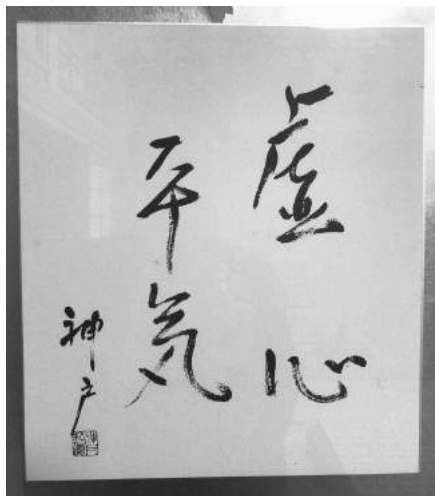 虚心
平気
神戸